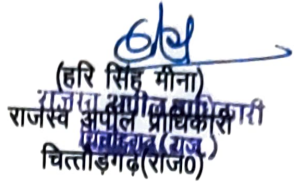 (हरि सिंह मीना)
राजस्व अपील प्राधिकारी
चित्तौड़गढ़(राज0)